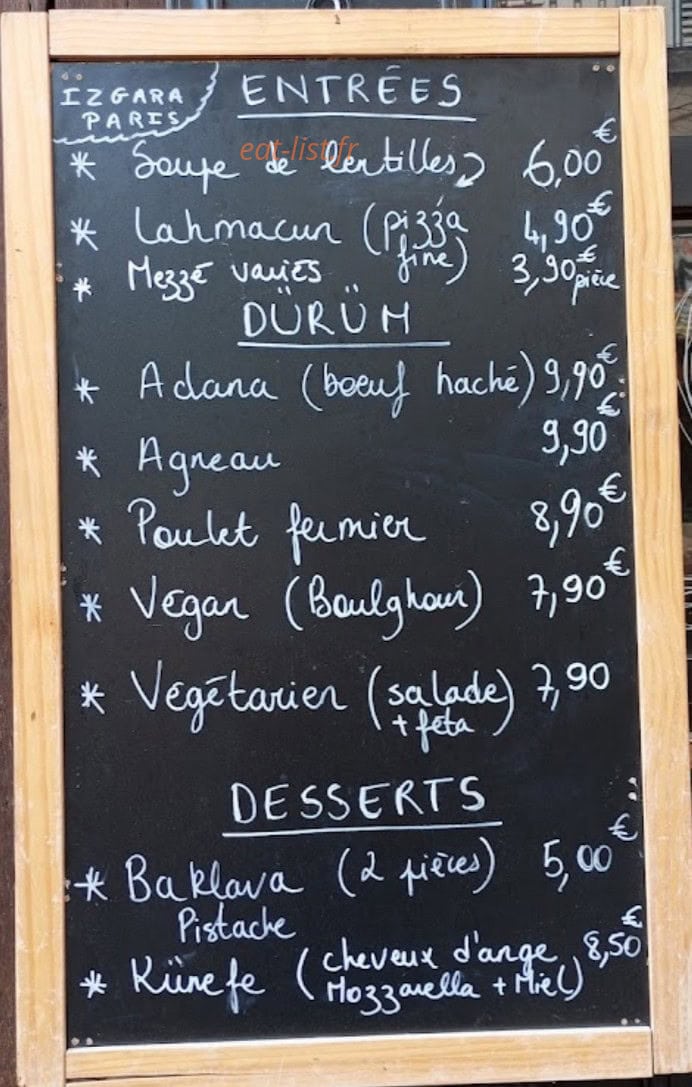 IZGARA
PARIS
ENTRÉES
eat-list.fr
* Soupe de lentilles 6,00€
* Lahmacun (pizza fine) 4,90€
* Mezzé variés 3,90€ pièce
DÜRÜM
* Adana (boeuf haché) 9,90€
* Agneau 9,90€
* Poulet fermier 8,90€
* Végan (Boulghour) 7,90€
* Végétarien (salade + féta) 7,90
DESSERTS
* Baklava (2 pièces) 5,00€
Pistache
* Künefe (cheveux d'ange 8,50€
Mozzarella + Miel)